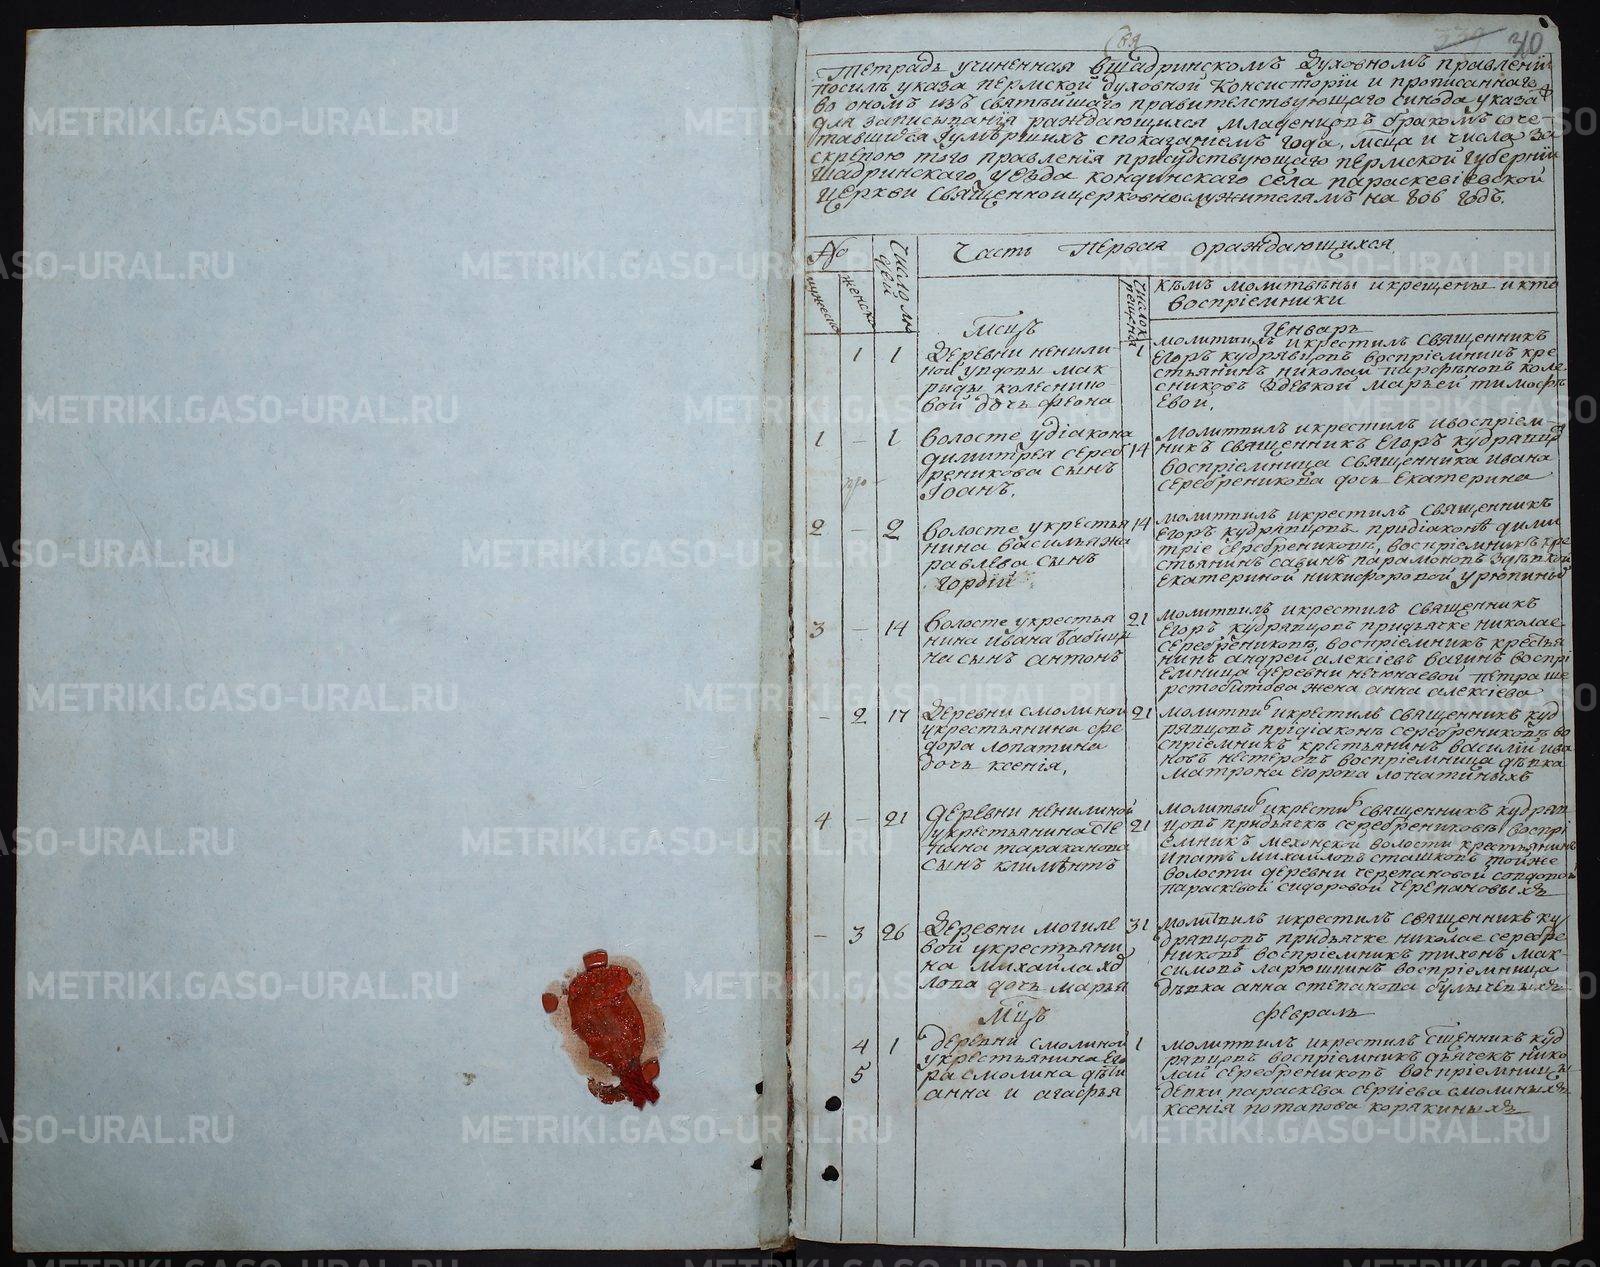 339 30
Тетрадь учиненная вшадринскомъ духовномъ правлении
посилъ указа пермской духовной Консисторїи и прописаннаго
во ономъ изъ святѣйшаго правителствующаго синода указа
для записыванїя раждающихся младенцовъ бракомъ соче-
тавшихся Їумѣршихъ спокаганїемъ года, мсца и числа за
скрепою того правленїя присудствующаго пермской губернїи
Шадринскаго уезда кондинскаго села параскевїевской
церкви священноицерковнослужителямъ на 806 годъ.
№
мужеска
женска
Число лю
дей
Часть Первая ораждающихся
Число к
рещенїя
кѣмъ молитвѣны икрещены икто
воспрїемники
Мсцъ
Генварь
1 1
деревни ненили
ной удовы мак
риды колеснико
вой дочь феона
1
молитвилъ икрестилъ священникъ
Егоръ кудрявцовъ воспрїемникъ кре
стьянинъ николай парфѣновъ коле
сниковъ здевкой марьей тимофѣ
евой.
1 – 1
волосте удїакона
димитрея сереб
реникова сынъ
Їоанъ.
14
молитвилъ икрестилъ ивоспрїем-
никъ священникъ Егоръ кудрявцов
воспрїемница священника ивана
серебреникова дочь Екатерина
2 – 2
волосте укрестья
нина василья жа
равлева сынъ
гордїй
14
молитвилъ икрестилъ священникъ
Егоръ кудрявцовъ придїаконѣ дими
трїе серебрениковѣ, воспрїемникъ кре
стьянинъ савинъ парамоновъ здѣвкой
Екатериной никифоровой урюпиных
3 – 14
волосте укрестья
нина ивана бабици
на сынъ антонъ
21
молитвилъ икрестилъ священникъ
Егоръ кудрявцовъ придьячке николае
серебрениковѣ, воспрїемникъ крестья
нинъ андрей алексїевъ вагинъ воспрї
емница деревни нечюнаевой петра ше
рстобитова жена анна алексїева
– 2 17
деревни смолиной
укрестьянина фе
дора лопатина
дочь ксенїя,
21
молитвилъ икрестилъ священникъ куд
рявцовъ прїдїаконѣ серебрениковѣ во
спрїемникъ крестьянинъ василїй ива
новъ нестеровъ воспрїемница дѣвка
матрона егорова лопатиныхъ
4 – 21
деревни ненилиной
укрестьянина сте
пана тараканова
сынъ климѣнтъ
21
молитвилъ икрестилъ священникъ кудряв
цовъ придьячкѣ серебрениковѣ воспрї
емникъ мехонской волости крестьянинъ
ипатъ михайловъ сташковъ тойже
волости деревни черепановой совдовой
параскевой сидоровой черепановыхъ
– 3 26
деревни могиле
вой укрестьяни
на михайла хо
лопа дочь марья
31
молитвилъ икрестилъ священникъ ку
дрявцовъ придьячке николае серебре
никовѣ воспрїемникъ тихонъ мак
симовъ ларюшинъ воспрїемница
дѣвка анна степанова булычевыхъ
Мсцъ
февраль
4 1
5
деревни смолиной
укрестьянина его
ра смолина дѣти
анна и агафья
1
молитвилъ икрестилъ сщенникъ куд
рявцовъ воспрїемникъ дьячекъ нико
лай серебрениковъ воспрїемницы
девки параскева сергїева смолиныхъ
ксенїя потапова корякиныхъ